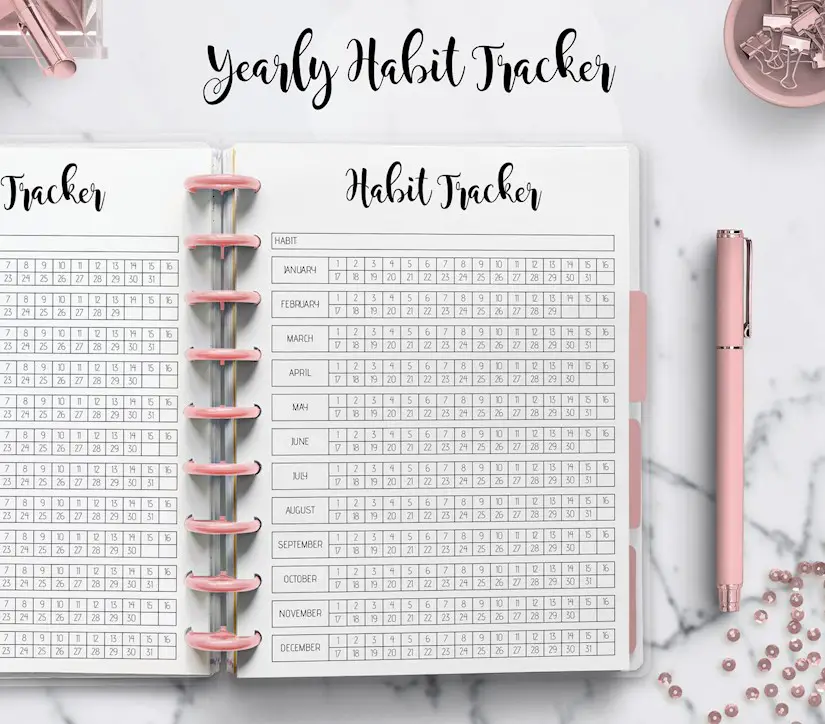 Yearly Habit Tracker
Tracker
7 8 9 10 11 12 13 14 15 16
23 24 25 26 27 28 29 30 31
7 8 9 10 11 12 13 14 15 16
23 24 25 26 27 28 29
7 8 9 10 11 12 13 14 15 16
23 24 25 26 27 28 29 30 31
7 8 9 10 11 12 13 14 15 16
23 24 25 26 27 28 29 30
7 8 9 10 11 12 13 14 15 16
23 24 25 26 27 28 29 30 31
7 8 9 10 11 12 13 14 15 16
23 24 25 26 27 28 29 30
7 8 9 10 11 12 13 14 15 16
23 24 25 26 27 28 29 30 31
7 8 9 10 11 12 13 14 15 16
23 24 25 26 27 28 29 30 31
7 8 9 10 11 12 13 14 15 16
23 24 25 26 27 28 29 30
7 8 9 10 11 12 13 14 15 16
23 24 25 26 27 28 29 30 31
7 8 9 10 11 12 13 14 15 16
23 24 25 26 27 28 29 30
7 8 9 10 11 12 13 14 15 16
23 24 25 26 27 28 29 30 31
Habit Tracker
HABIT
JANUARY 1 2 3 4 5 6 7 8 9 10 11 12 13 14 15 16
17 18 19 20 21 22 23 24 25 26 27 28 29 30 31
FEBRUARY 1 2 3 4 5 6 7 8 9 10 11 12 13 14 15 16
17 18 19 20 21 22 23 24 25 26 27 28 29
MARCH 1 2 3 4 5 6 7 8 9 10 11 12 13 14 15 16
17 18 19 20 21 22 23 24 25 26 27 28 29 30 31
APRIL 1 2 3 4 5 6 7 8 9 10 11 12 13 14 15 16
17 18 19 20 21 22 23 24 25 26 27 28 29 30
MAY 1 2 3 4 5 6 7 8 9 10 11 12 13 14 15 16
17 18 19 20 21 22 23 24 25 26 27 28 29 30 31
JUNE 1 2 3 4 5 6 7 8 9 10 11 12 13 14 15 16
17 18 19 20 21 22 23 24 25 26 27 28 29 30
JULY 1 2 3 4 5 6 7 8 9 10 11 12 13 14 15 16
17 18 19 20 21 22 23 24 25 26 27 28 29 30 31
AUGUST 1 2 3 4 5 6 7 8 9 10 11 12 13 14 15 16
17 18 19 20 21 22 23 24 25 26 27 28 29 30 31
SEPTEMBER 1 2 3 4 5 6 7 8 9 10 11 12 13 14 15 16
17 18 19 20 21 22 23 24 25 26 27 28 29 30
OCTOBER 1 2 3 4 5 6 7 8 9 10 11 12 13 14 15 16
17 18 19 20 21 22 23 24 25 26 27 28 29 30 31
NOVEMBER 1 2 3 4 5 6 7 8 9 10 11 12 13 14 15 16
17 18 19 20 21 22 23 24 25 26 27 28 29 30
DECEMBER 1 2 3 4 5 6 7 8 9 10 11 12 13 14 15 16
17 18 19 20 21 22 23 24 25 26 27 28 29 30 31